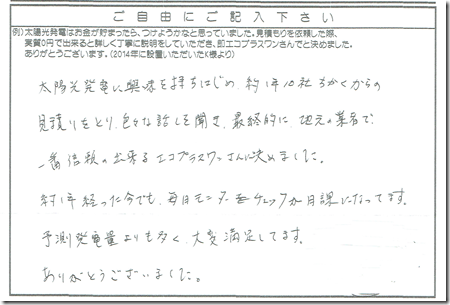 ご自由にご記入下さい
例)太陽光発電はお金が貯まったら、つけようかなと思っていました。見積もりを依頼した際、
実質0円で出来ると詳しく丁寧に説明をしていただき、即エコプラスワンさんでと決めました。
ありがとうございます。(2014年に設置いただいたK様より)
太陽光発電に興味を持ちはじめ、約1年10社ちかくからの
見積りをとり、色々な話しを聞き、最終的に地元の業者で
一番信頼の出来るエコプラスワンさんに決めました。
約1年経った今でも、毎日モニターをチェックが日課になってます。
予測発電量よりも多く、大変満足してます。
ありがとうございました。